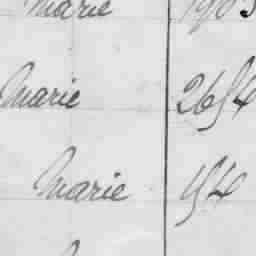 Marie 1903
Marie 2654
Marie 154